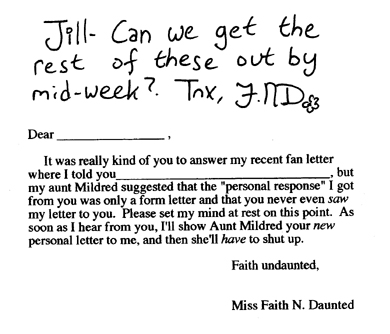 Jill- Can we get the
rest of these out by
mid-week? Tnx, F.N.D.
Dear ________________ ,
It was really kind of you to answer my recent fan letter
where I told you________________________________, but
my aunt Mildred suggested that the "personal response" I got
from you was only a form letter and that you never even saw
my letter to you. Please set my mind at rest on this point. As
soon as I hear from you, I'll show Aunt Mildred your new
personal letter to me, and then she'll have to shut up.
Faith undaunted,
Miss Faith N. Daunted